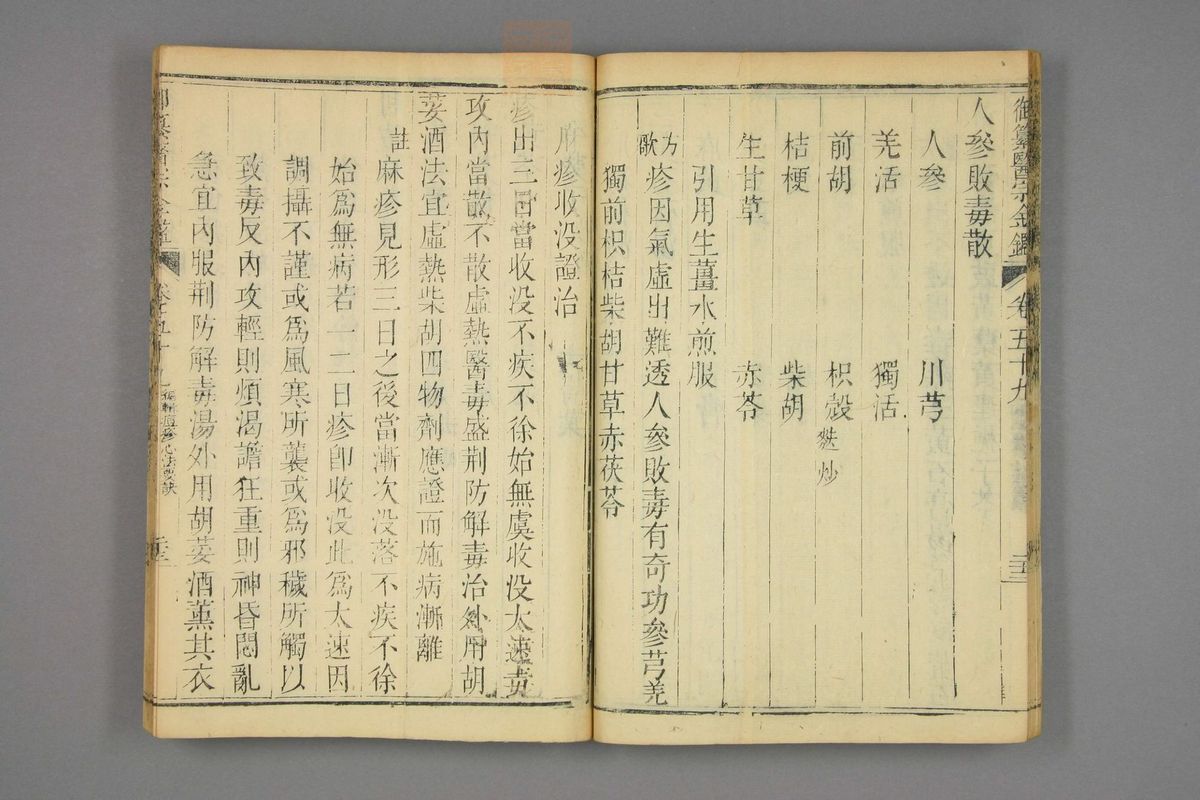 御纂醫宗金鑑 卷五十九
人參敗毒散
人參 川芎
羌活 獨活
前胡 枳殼 麩炒
桔梗 柴胡
生甘草 赤苓
引用生薑水煎服
方歌 疹因氣虛出難透人參敗毒有奇功參芎羌
獨前枳桔柴胡甘草赤茯苓
疹收没證治
疹出三日當收没不疾不徐始無虞收没太速毒
攻內當散不散虛熱醫毒盛荆防解毒治外用胡
荽酒法宜虛熱柴胡四物劑應證而施病漸離
註 麻疹見形三日之後當漸次没落不疾不徐
始爲無病若一二日疹卽收没此爲太速因
調攝不謹或爲風寒所襲或爲邪穢所觸以
致毒反內攻輕則煩渴譫狂重則神昏悶亂
急宜內服荆防解毒湯外用胡荽酒薰其衣